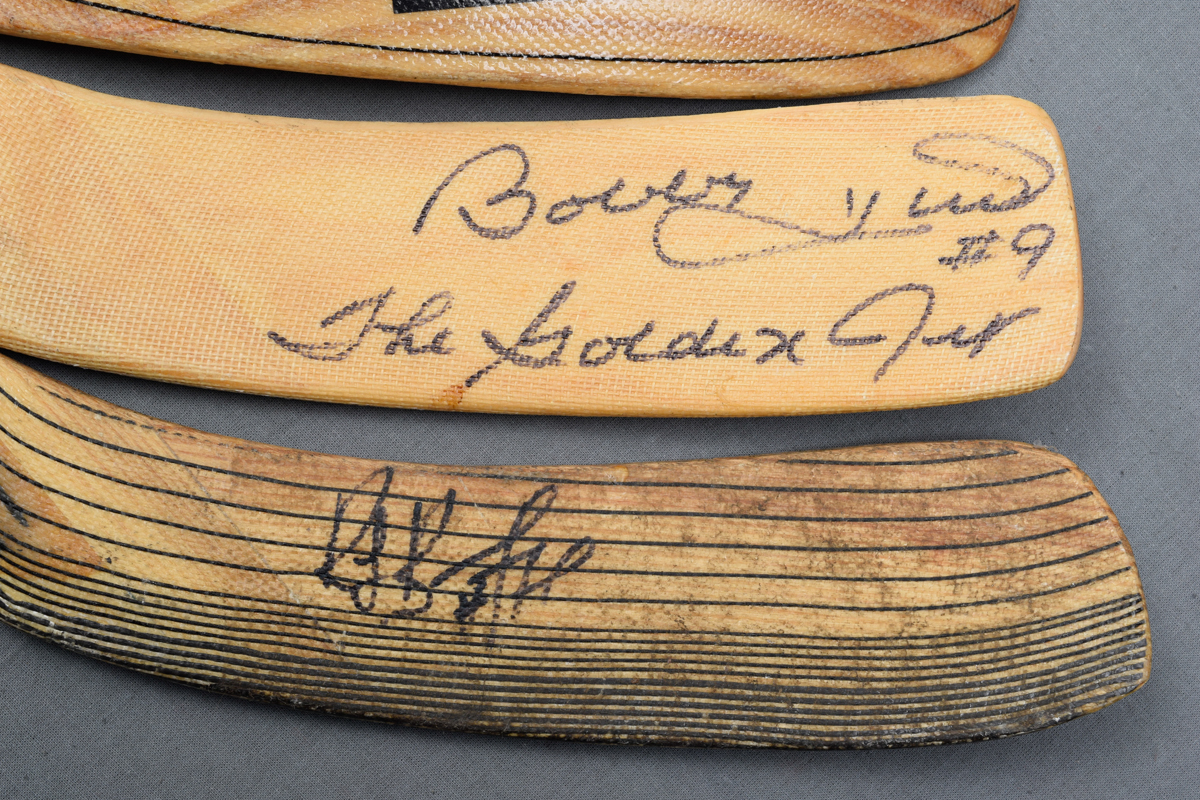 Bobby Hull
#9
The Golden Jet